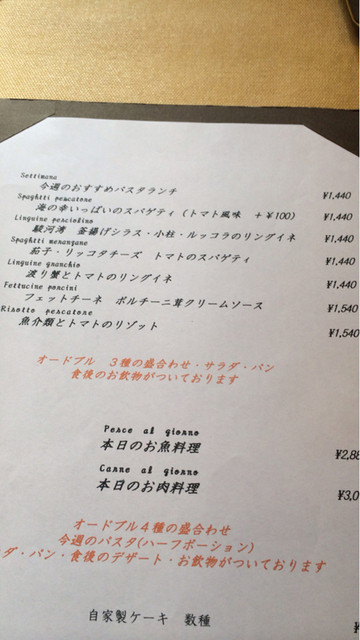 Settimana
今週のおすすめパスタランチ ¥1,440
Spaghtti pescatone
海の幸いっぱいのスパゲティ（トマト風味 ＋￥100） ¥1,440
Linguine pesciolino
駿河湾 釜揚げシラス・小柱・ルッコラのリングイネ ¥1,440
Spaghtti menangane
茄子・リッコタチーズ トマトのスパゲティ ¥1,440
Linguine gnanchio
渡り蟹とトマトのリングイネ ¥1,440
Fettucine poncini
フェットチーネ ポルチーニ茸クリームソース ¥1,540
Risotto pescatone
魚介類とトマトのリゾット ¥1,540
オードブル ３種の盛合わせ・サラダ・パン
食後のお飲物がついております
Pesce al giorno
本日のお魚料理 ¥2,88
Canne al giorno
本日のお肉料理 ¥3,0
オードブル４種の盛合わせ
今週のパスタ(ハーフポーション)
ダ・パン・食後のデザート・お飲物がついております
自家製ケーキ 数種